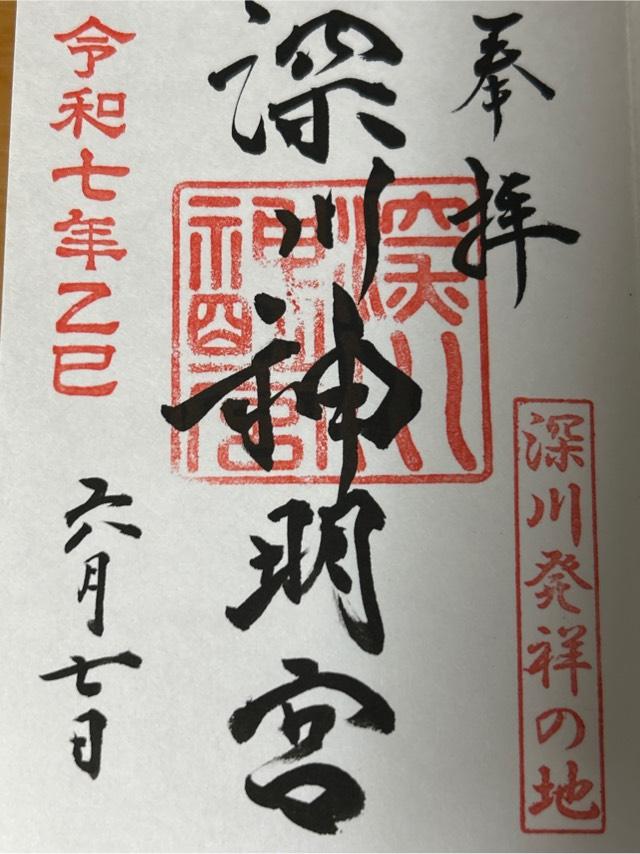 奉拝
深川発祥の地
深川神明宮
深川神明宮
令和七年乙巳
六月七日